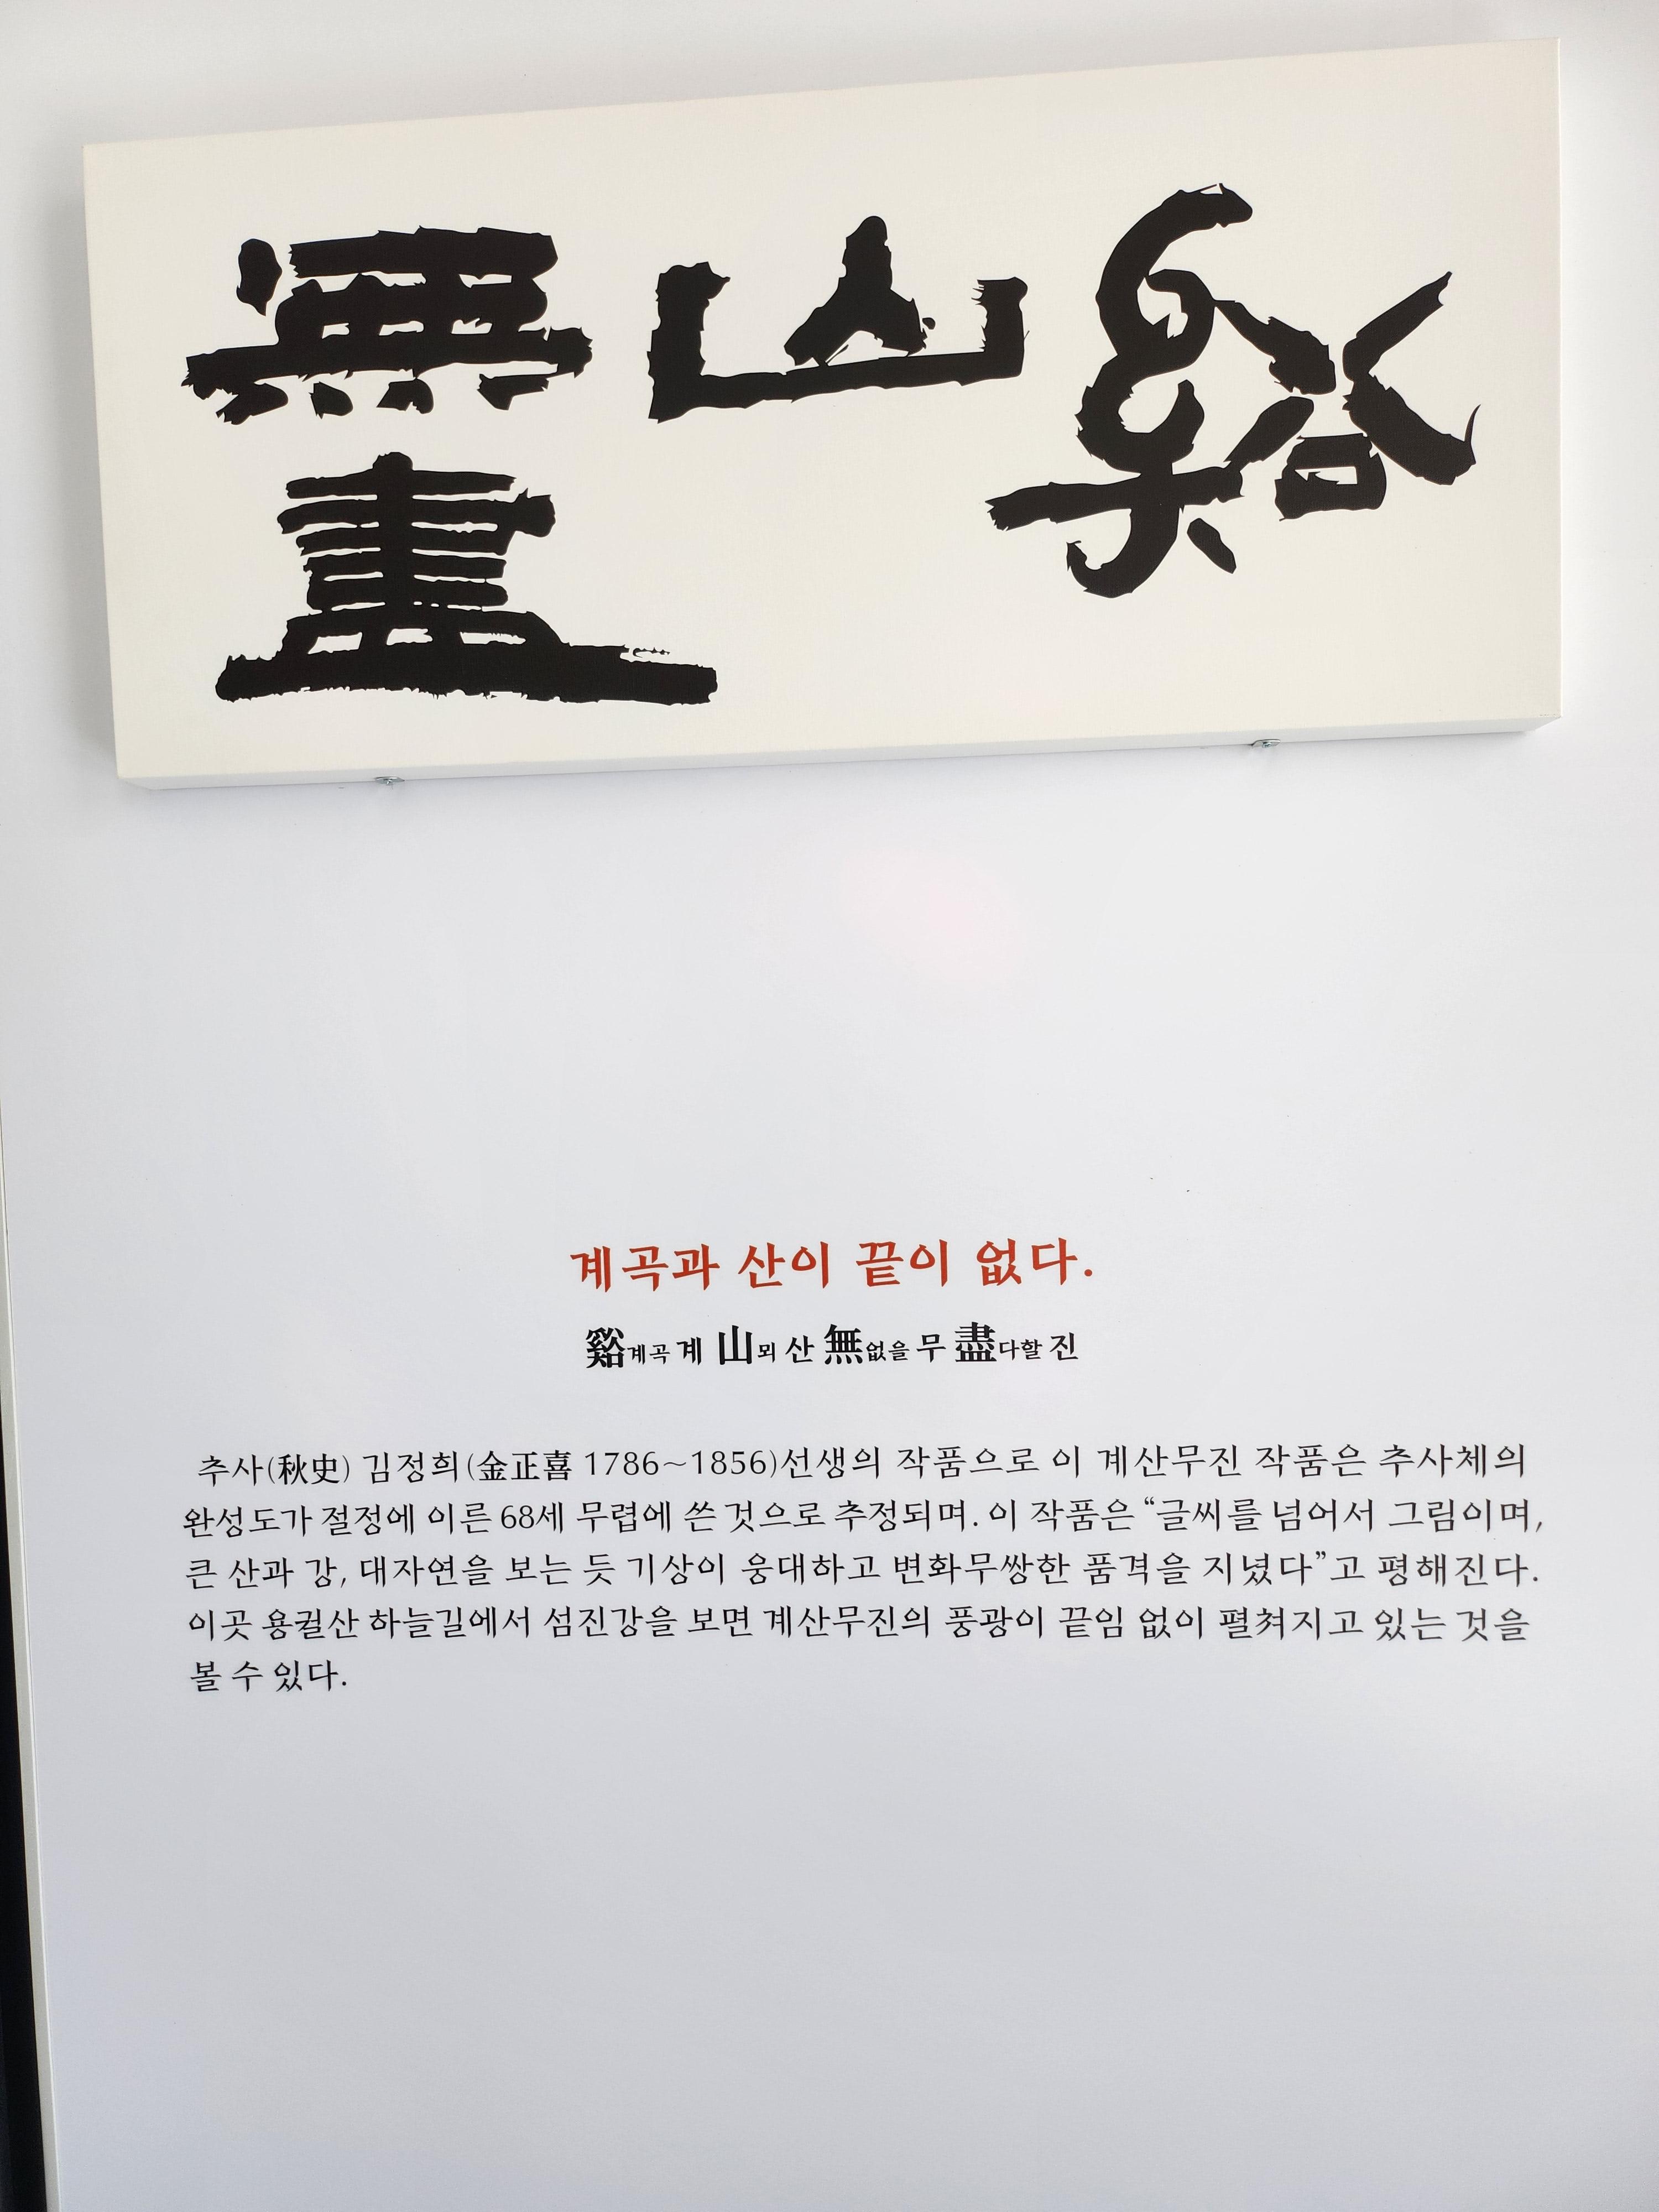 谿山無
盡
계곡과 산이 끝이 없다.
谿계곡 계 山뫼 산 無없을 무 盡다할 진
추사(秋史) 김정희(金正喜 1786~1856)선생의 작품으로 이 계산무진 작품은 추사체의
완성도가 절정에 이른 68세 무렵에 쓴 것으로 추정되며. 이 작품은 “글씨를 넘어서 그림이며,
큰 산과 강, 대자연을 보는 듯 기상이 웅대하고 변화무쌍한 품격을 지녔다”고 평해진다.
이곳 용궐산 하늘길에서 섬진강을 보면 계산무진의 풍광이 끝임 없이 펼쳐지고 있는 것을
볼 수 있다.